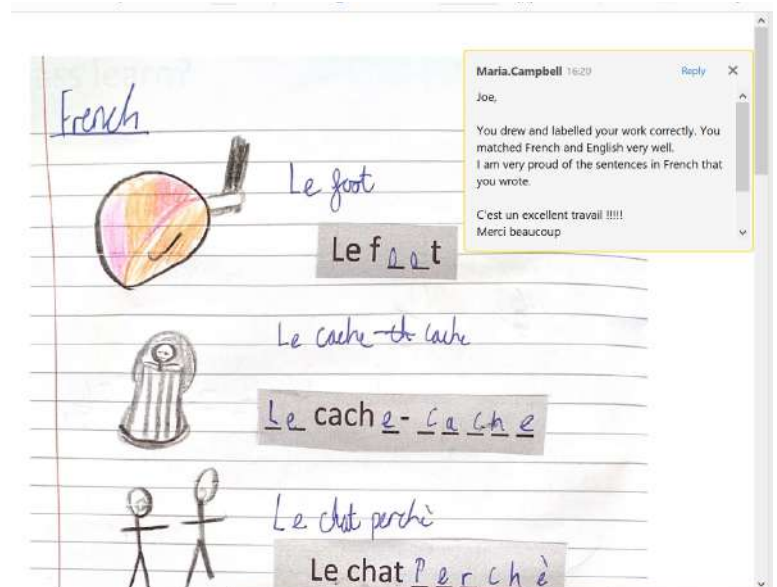 French
Le foot
Le foot
Le cache-th cache
Le cache-cache
Le chat perchè
Le chat Perchè
Maria.Campbell 16:20 Reply
Joe,
You drew and labelled your work correctly. You
matched French and English very well.
I am very proud of the sentences in French that
you wrote.
C'est un excellent travail !!!!!
Merci beaucoup